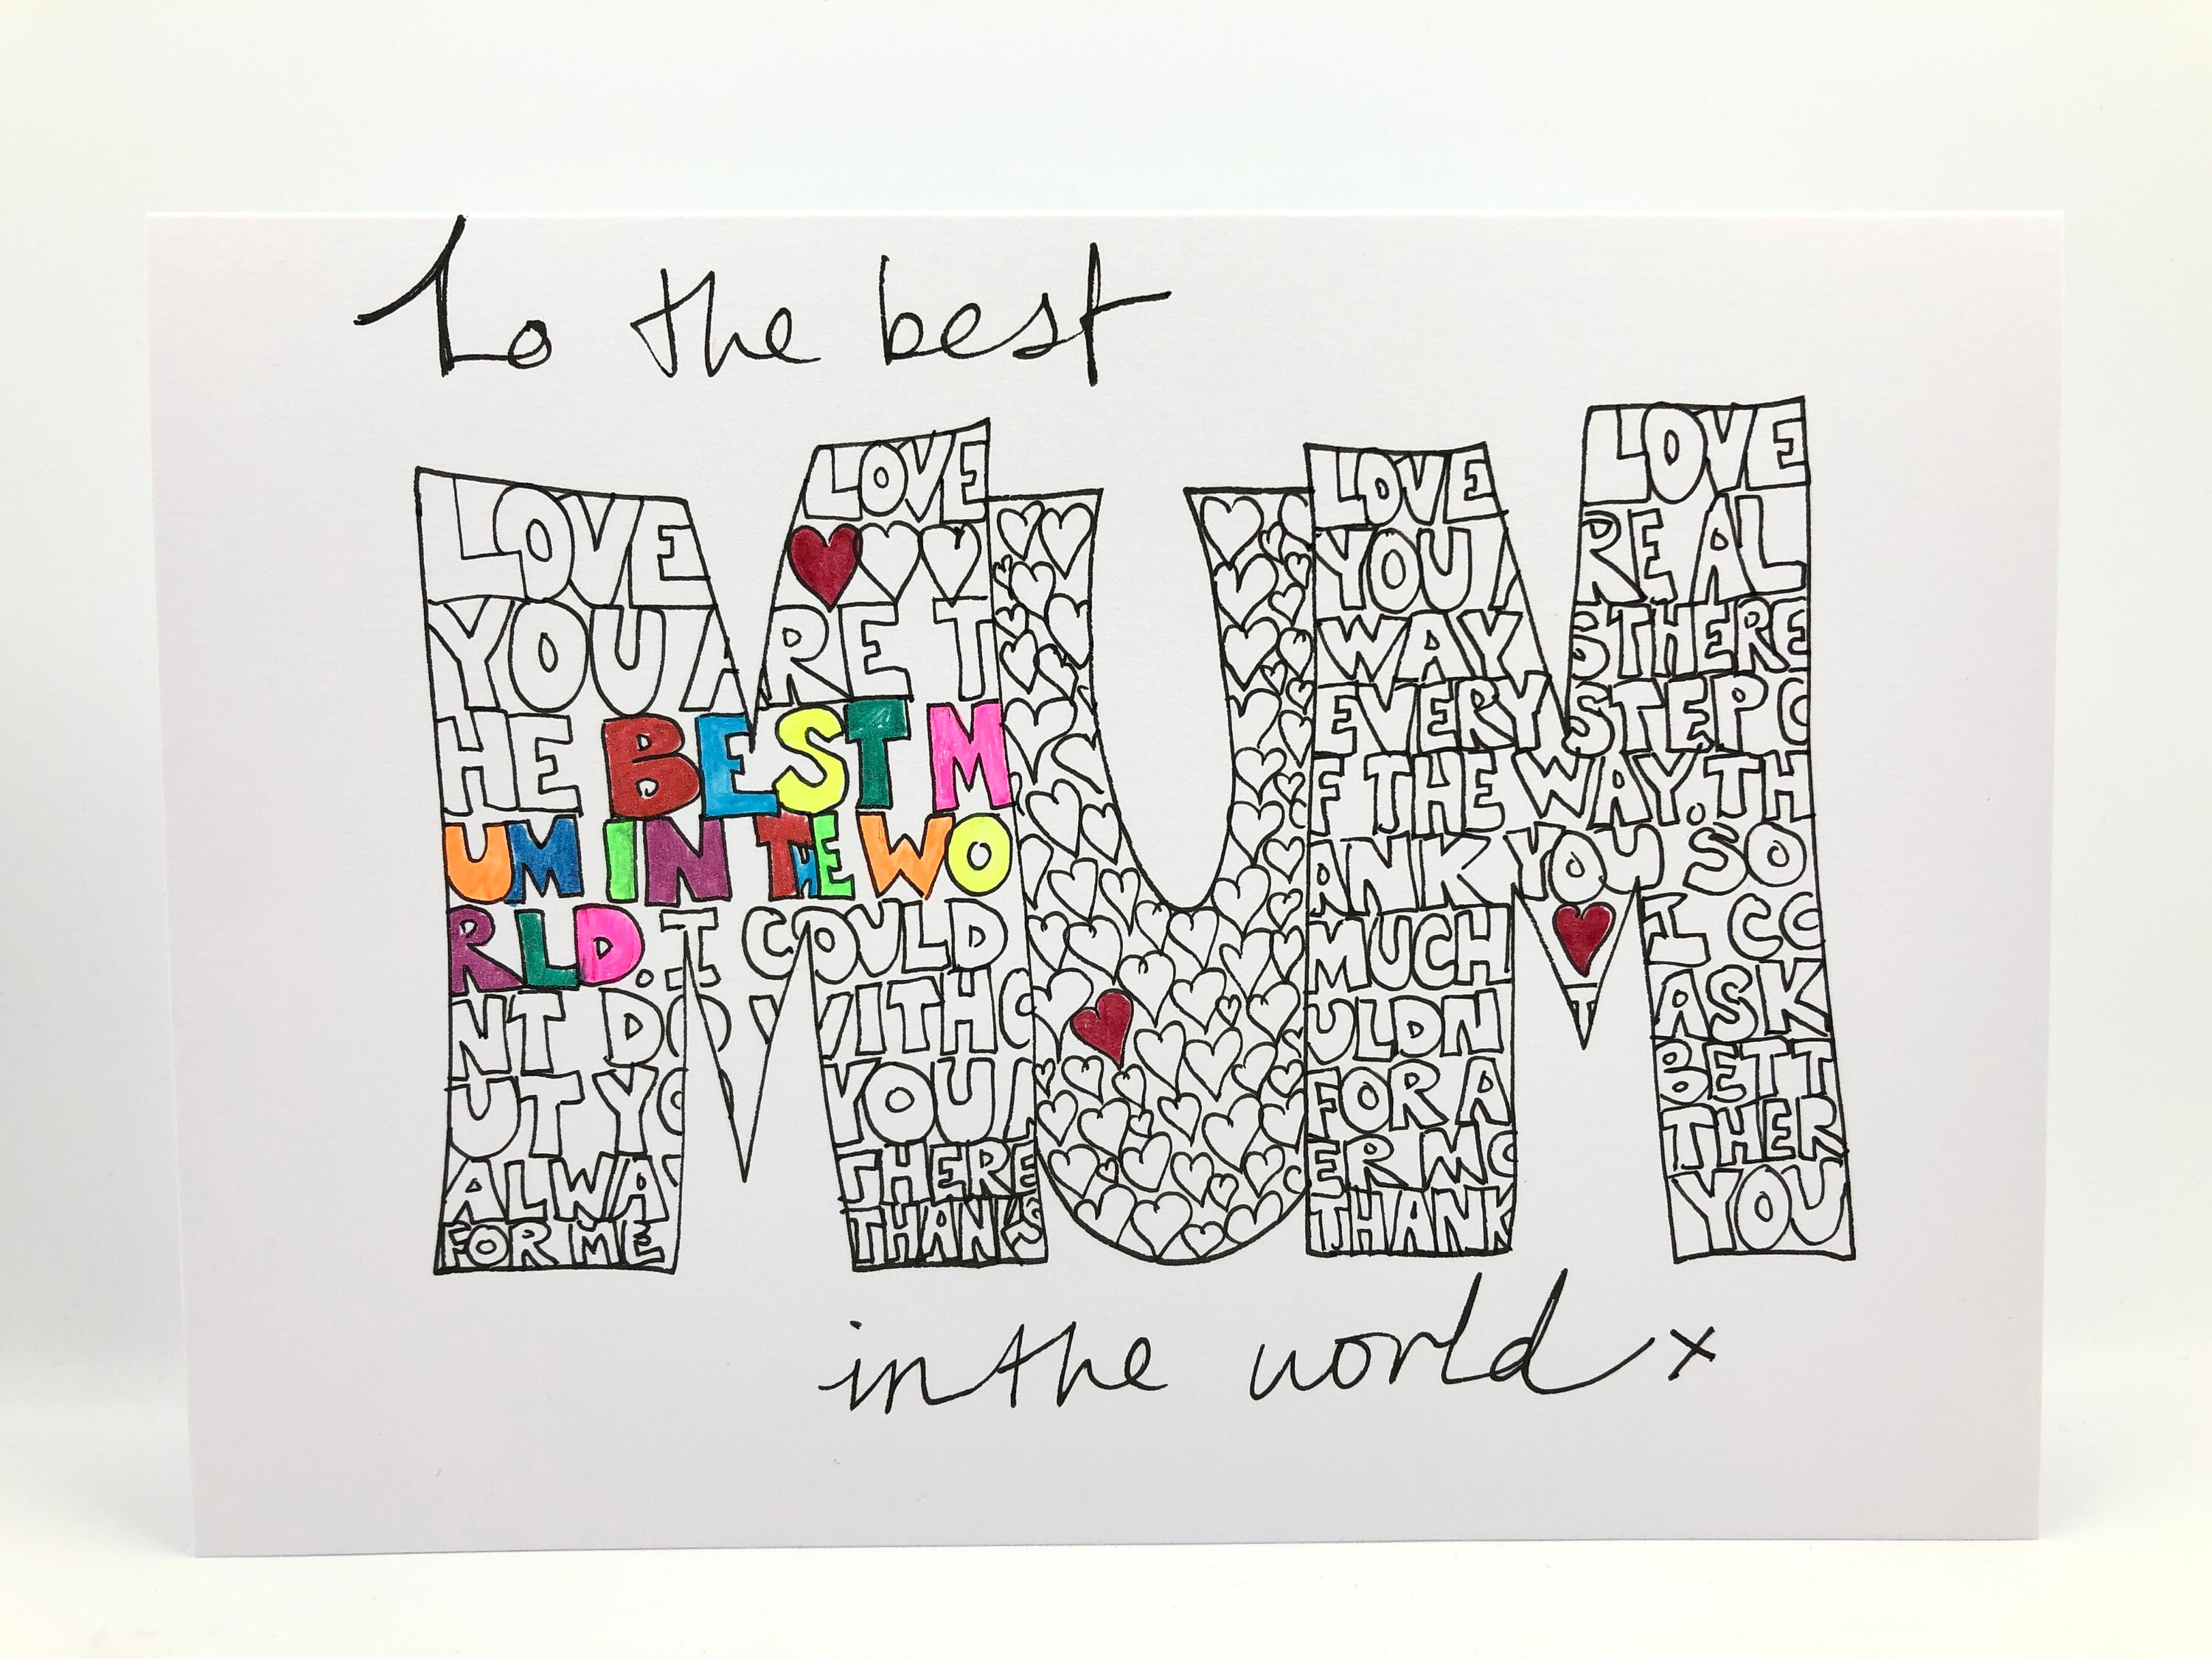 To the best
MUM
LOVE LOVE
YOU ARE T
HE BEST M
UM IN THE WO
RLD. I COULD
NT DO WITHO
UT YO YOU A
ALWA THERE
FOR ME THANKS
LOVE LOVE
YOU A REAL
WAY STHERE
EVERY STEP O
F THE WAY. TH
ANK YOU SO
MUCH I CO
ULDN T ASK
FOR A BETT
ER MO THER
THANK YOU
in the world x